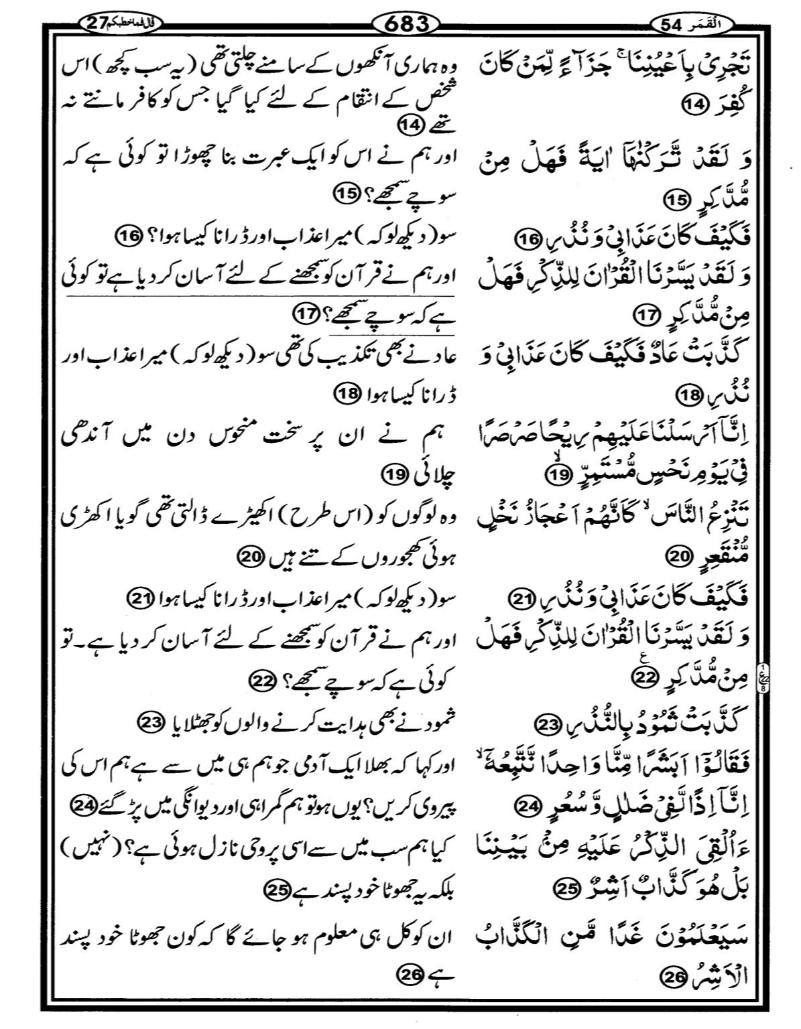 اَلْقَمَر 54
683
قال فما خطبكم 27
تَجْرِیْ بِاَعْیُنِنَا ۚ جَزَآءً لِّمَنْ كَانَ
كُفِرَ 14
وَ لَقَدْ تَّرَكْنٰهَاۤ اٰیَةً فَهَلْ مِنْ
مُّدَّكِرٍ 15
فَكَیْفَ كَانَ عَذَابِیْ وَ نُذُرِ 16
وَ لَقَدْ یَسَّرْنَا الْقُرْاٰنَ لِلذِّكْرِ فَهَلْ
مِنْ مُّدَّكِرٍ 17
كَذَّبَتْ عَادٌ فَكَیْفَ كَانَ عَذَابِیْ وَ
نُذُرِ 18
اِنَّاۤ اَرْسَلْنَا عَلَیْهِمْ رِیْحًا صَرْصَرًا
فِیْ یَوْمِ نَحْسٍ مُّسْتَمِرٍّ ۙ 19
تَنْزِعُ النَّاسَ ۙ كَاَنَّهُمْ اَعْجَازُ نَخْلٍ
مُّنْقَعِرٍ 20
فَكَیْفَ كَانَ عَذَابِیْ وَ نُذُرِ 21
وَ لَقَدْ یَسَّرْنَا الْقُرْاٰنَ لِلذِّكْرِ فَهَلْ
مِنْ مُّدَّكِرٍ ع 22
كَذَّبَتْ ثَمُوْدُ بِالنُّذُرِ 23
فَقَالُوْۤا اَبَشَرًا مِّنَّا وَاحِدًا نَّتَّبِعُهٗۤ ۙ
اِنَّاۤ اِذًا لَّفِیْ ضَلٰلٍ وَّ سُعُرٍ 24
ءَاُلْقِیَ الذِّكْرُ عَلَیْهِ مِنْۢ بَیْنِنَا
بَلْ هُوَ كَذَّابٌ اَشِرٌ 25
سَیَعْلَمُوْنَ غَدًا مَّنِ الْكَذَّابُ
الْاَشِرُ 26
وہ ہماری آنکھوں کے سامنے چلتی تھی (یہ سب کچھ) اس
شخص کے انتقام کے لئے کیا گیا جس کو کافر مانتے نہ
تھے 14
اور ہم نے اس کو ایک عبرت بنا چھوڑا تو کوئی ہے کہ
سوچے سمجھے؟ 15
سو (دیکھ لو کہ) میرا عذاب اور ڈرانا کیسا ہوا؟ 16
اور ہم نے قرآن کو سمجھنے کے لئے آسان کر دیا ہے تو کوئی
ہے کہ سوچے سمجھے؟ 17
عاد نے بھی تکذیب کی تھی سو (دیکھ لو کہ) میرا عذاب اور
ڈرانا کیسا ہوا 18
ہم نے ان پر سخت منحوس دن میں آندھی
چلائی 19
وہ لوگوں کو (اس طرح) اکھیڑے ڈالتی تھی گویا اکھڑی
ہوئی کھجوروں کے تنے ہیں 20
سو (دیکھ لو کہ) میرا عذاب اور ڈرانا کیسا ہوا 21
اور ہم نے قرآن کو سمجھنے کے لئے آسان کر دیا ہے۔ تو
کوئی ہے کہ سوچے سمجھے؟ 22
ثمود نے بھی ہدایت کرنے والوں کو جھٹلایا 23
اور کہا کہ بھلا ایک آدمی جو ہم ہی میں سے ہے ہم اس کی
پیروی کریں؟ یوں ہو تو ہم گمراہی اور دیوانگی میں پڑ گئے 24
کیا ہم سب میں سے اسی پر وحی نازل ہوئی ہے؟ (نہیں)
بلکہ یہ جھوٹا خود پسند ہے 25
ان کو کل ہی معلوم ہو جائے گا کہ کون جھوٹا خود پسند
ہے 26